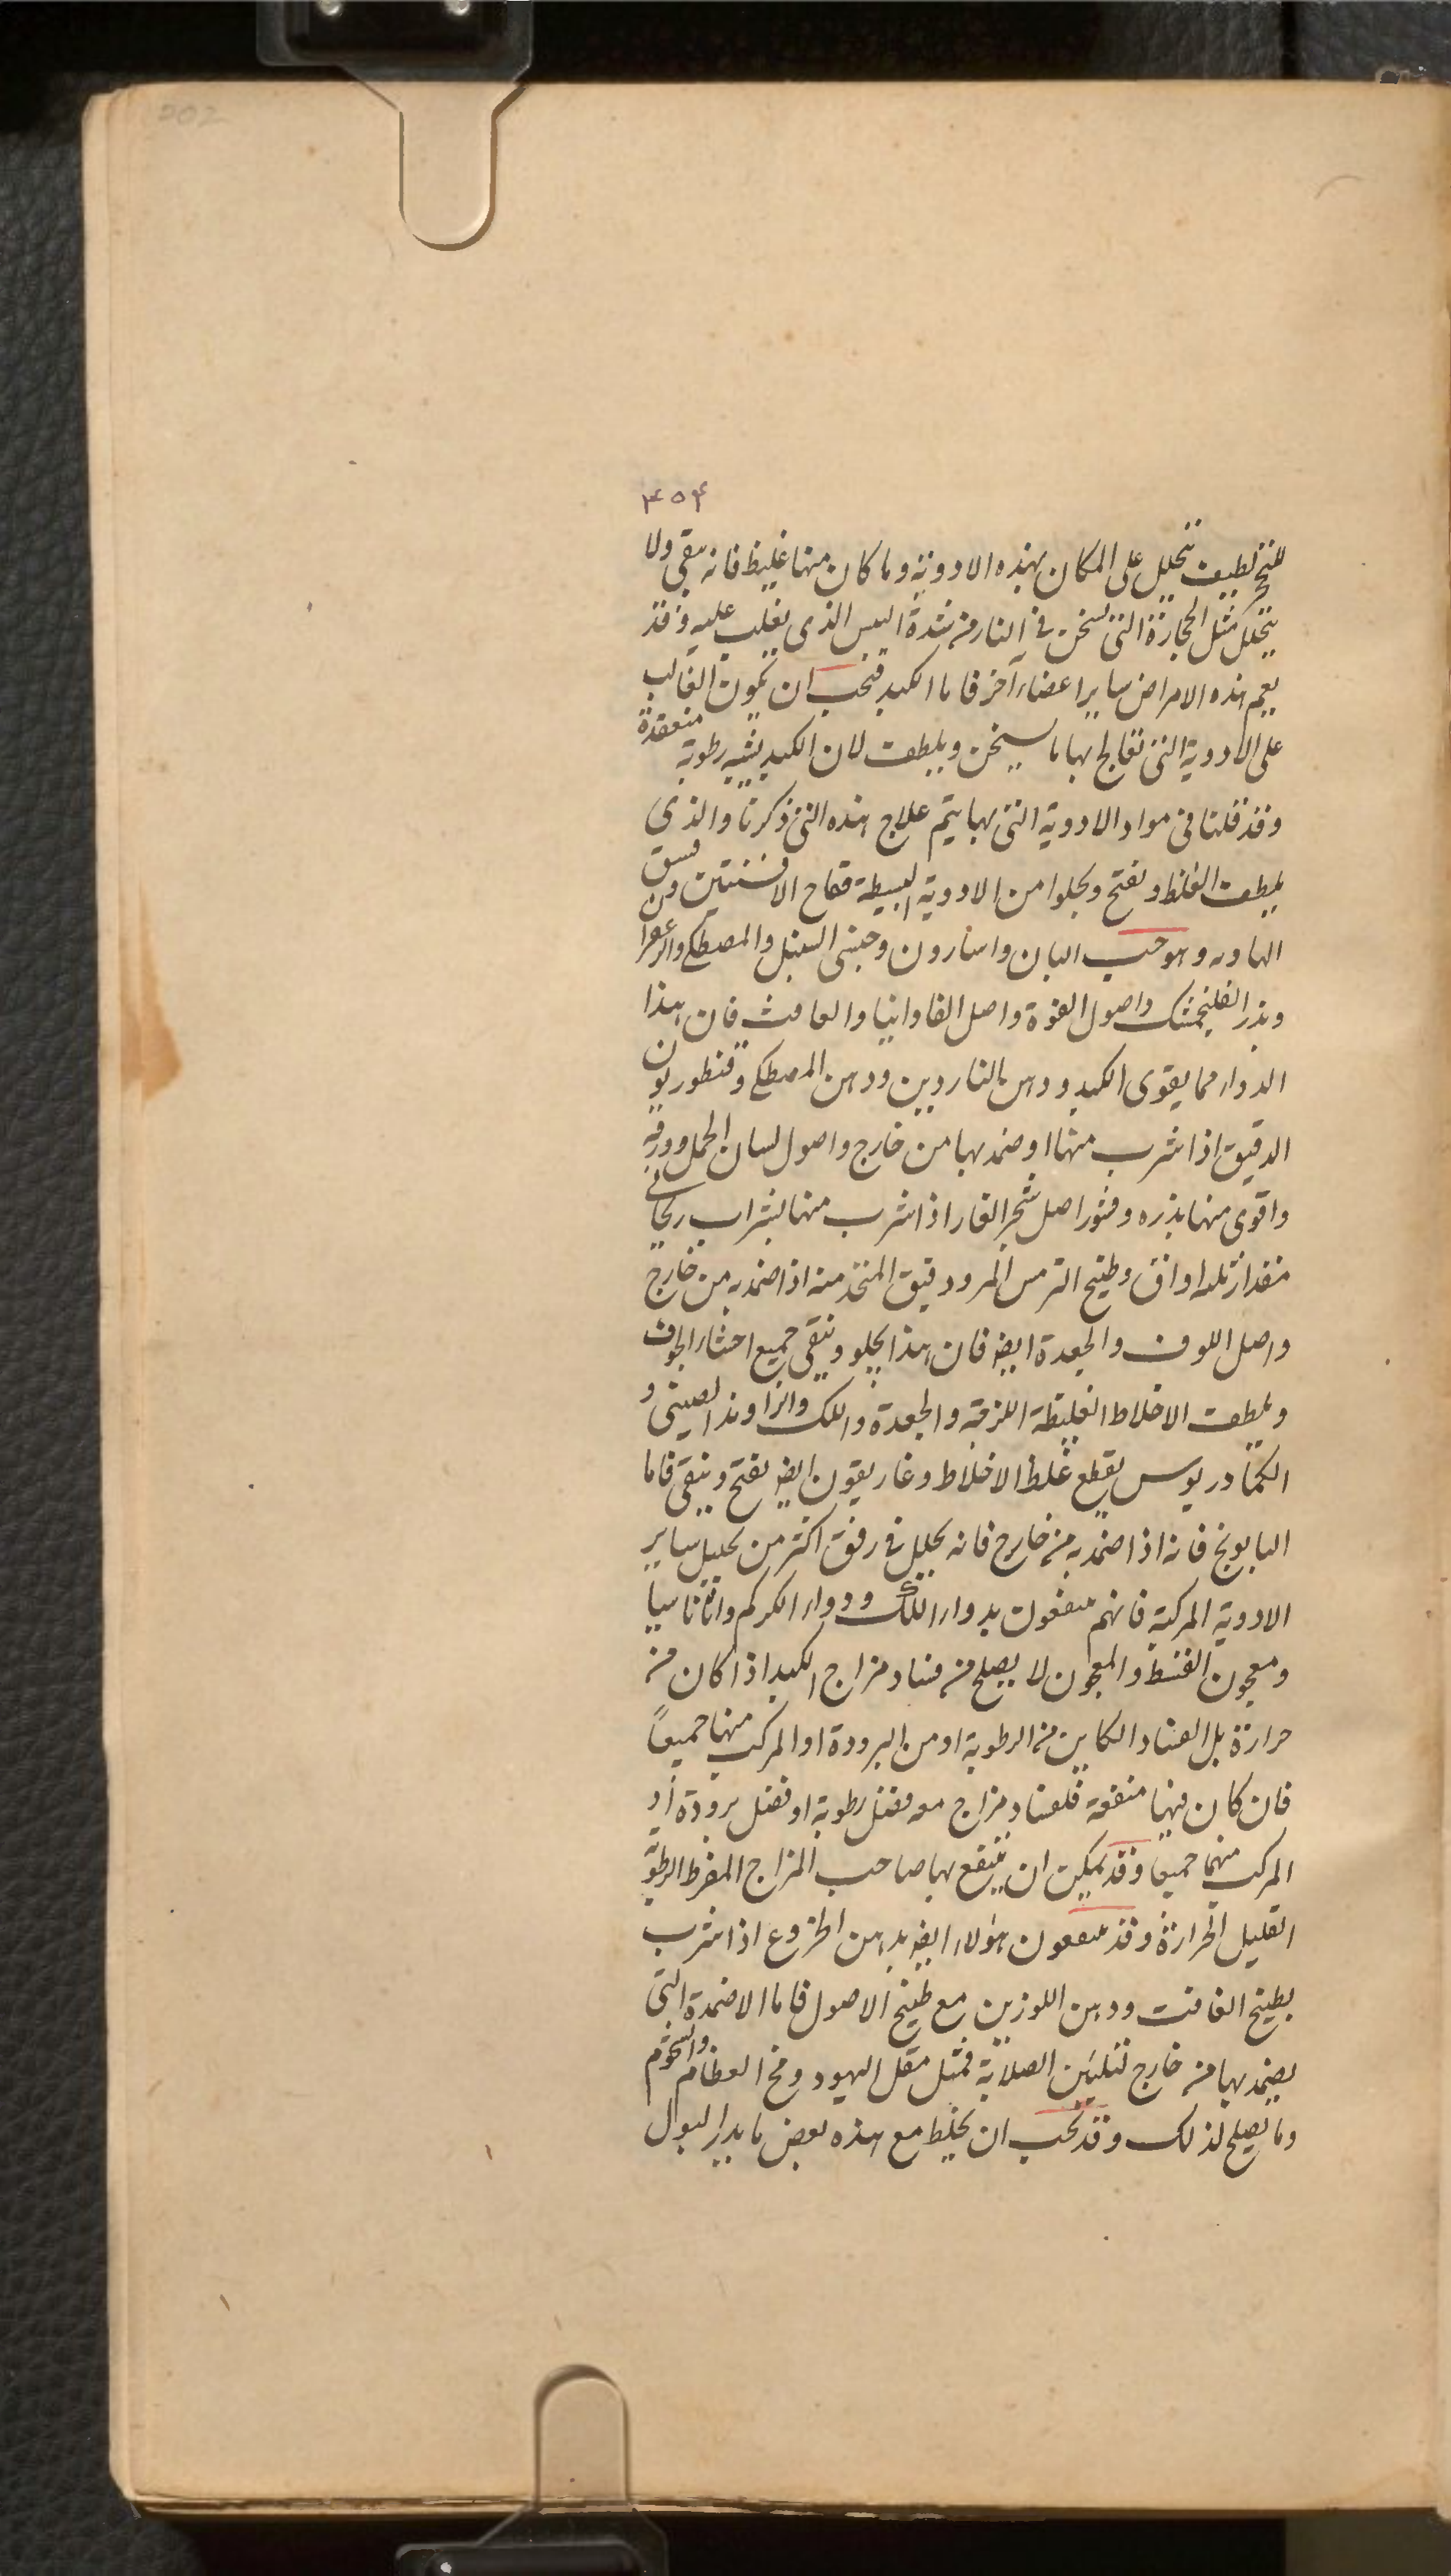 202
۴۵۴
للنج لطيف تتحلل على المكان بهذه الادوية وما كان منها غليظ فانه يبقى ولا
يتحلل مثل الحجارة التى تسخن فى النار من شدة اليبس الذى يغلب عليه وقد
يعم هذه الامراض ساير اعضاء آخر فاما الكبد فيجب ان يكون الغالب
على الادوية التى تعالج بها ما يسخن ويلطف لان الكبد يشبه رطوبة منعقدة
وقد قلنا فى مواد الادوية التى بها يتم علاج هذه التى ذكرنا والذى
يلطف الغلظ ويفتح ويجلوا من الادوية البسيطة فقاح الافسنتين
وهو حب البان واسارون وجنبى السنبل والمصطكى والزعفرا
وبذر الفلنجمشك واصول الفوة واصل الفاوانيا والغافث فان هذا
الدواء مما يقوى الكبد ودهن الناردين ودهن المصطكى وقنطوريون
الدقيق اذا شرب منها او ضمد بها من خارج واصول لسان الحمل وورقه
واقوى منها بذره وقشور اصل شجر الغار اذا شرب منها بشراب ريحانى
مقدار ثلثه اواق وطبيخ الترمس المر ودقيق المتخذ منه اذا ضمد به من خارج
واصل اللوف والجعدة ايضا فان هذا يجلو وينقى جميع احشاء الجوف
ويلطف الاخلاط الغليظة اللزجة والجعدة واللك والراوند الصينى و
الكمادريوس يقطع غلظ الاخلاط وغاريقون ايضا يفتح وينقى فاما
البابونج فانه اذا ضمد به من خارج فانه يحلل فى رفق اكثر من تحليل ساير
الادوية المركبة فانهم ينتفعون بدواء اللك ودواء الكركم واثاناسيا
ومعجون القسط والمعجون لا يصلح من فساد مزاج الكبد اذا كان من
حرارة بل الفساد الكاين من الرطوبة او من البرودة او المركب منها جميعاً
فان كان فيها منفعة فلفساد مزاج معه فضل رطوبة او فضل برودة او
المركب منهما جميعا وقد يمكن ان ينتفع بها صاحب المزاج المفرط الرطوبة
القليل الحرارة وقد ينتفعون هؤلاء ايضا بدهن الخروع اذا شرب
بطبيخ الغافت ودهن اللوزين مع طبيخ الاصول فاما الاضمدة التى
يضمد بها من خارج لتليين الصلابة فمثل مقل اليهود ومخ العظام والشحوم
وما يصلح لذلك وقد يجب ان يخلط مع هذه بعض ما يدر البول